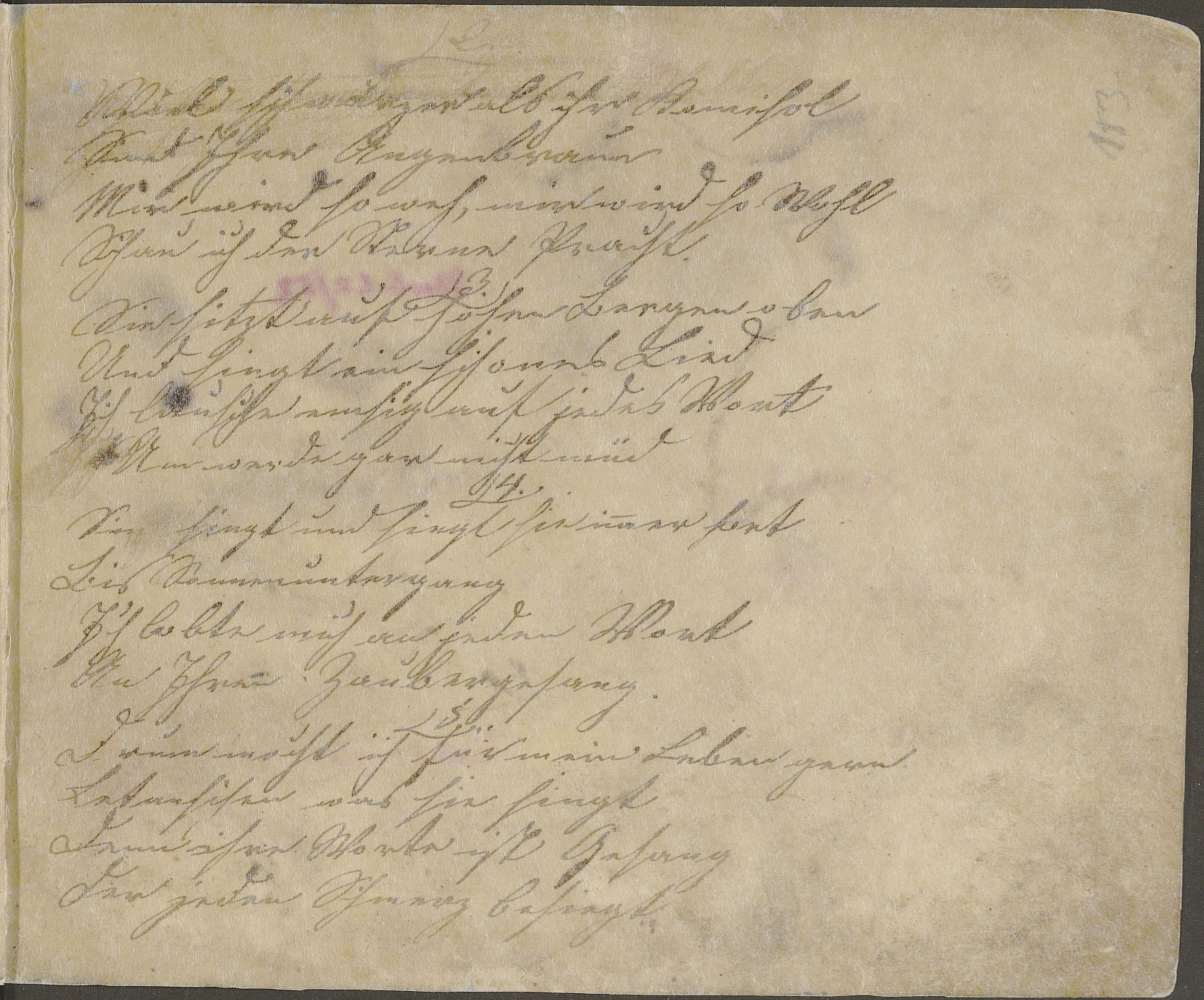 2.
Viel schwärzer als ihr Kamisol
Sind Ihre Augenbraun
Mir wird so weh, mir wird so Wohl
Schau ich der Sterne Pracht.
3.
Sie sitzt auf hohen Bergen oben
Und singt ein schönes Lied
Ich lausche emsig auf jedes Wort
Um werde gar nicht müd
4.
Sie singt und singt sie im̄er fort
Bis Sonnenuntergang
Ich labte mich an jeden Wort
An Ihren Zaubergesang.
5.
Drum möcht ich für mein Leben gern
was sie singt
Denn ihre Worte ist Gesang
Der jeden Schmerz besiegt